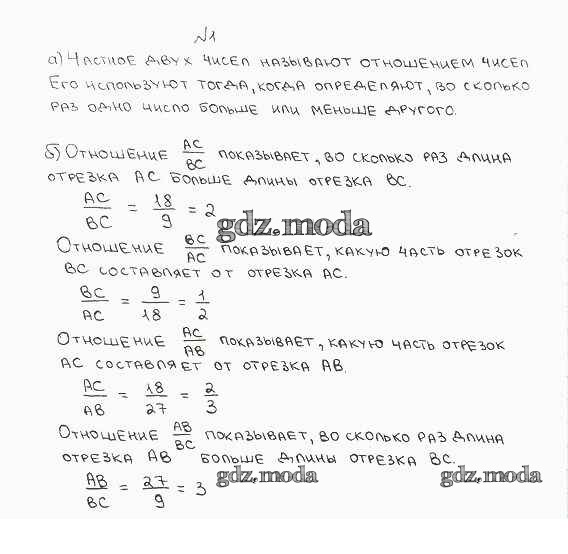 №1
а) Частное двух чисел называют отношением чисел
Его используют тогда, когда определяют, во сколько
раз одно число больше или меньше другого.
б) Отношение AC/BC показывает, во сколько раз длина
отрезка AC больше длины отрезка BC.
AC/BC = 18/9 = 2
gdz.moda
Отношение BC/AC показывает, какую часть отрезок
BC составляет от отрезка AC.
BC/AC = 9/18 = 1/2
Отношение AC/AB показывает, какую часть отрезок
AC составляет от отрезка AB.
AC/AB = 18/27 = 2/3
Отношение AB/BC показывает, во сколько раз длина
отрезка AB больше длины отрезка BC.
AB/BC = 27/9 = 3
gdz.moda gdz.moda